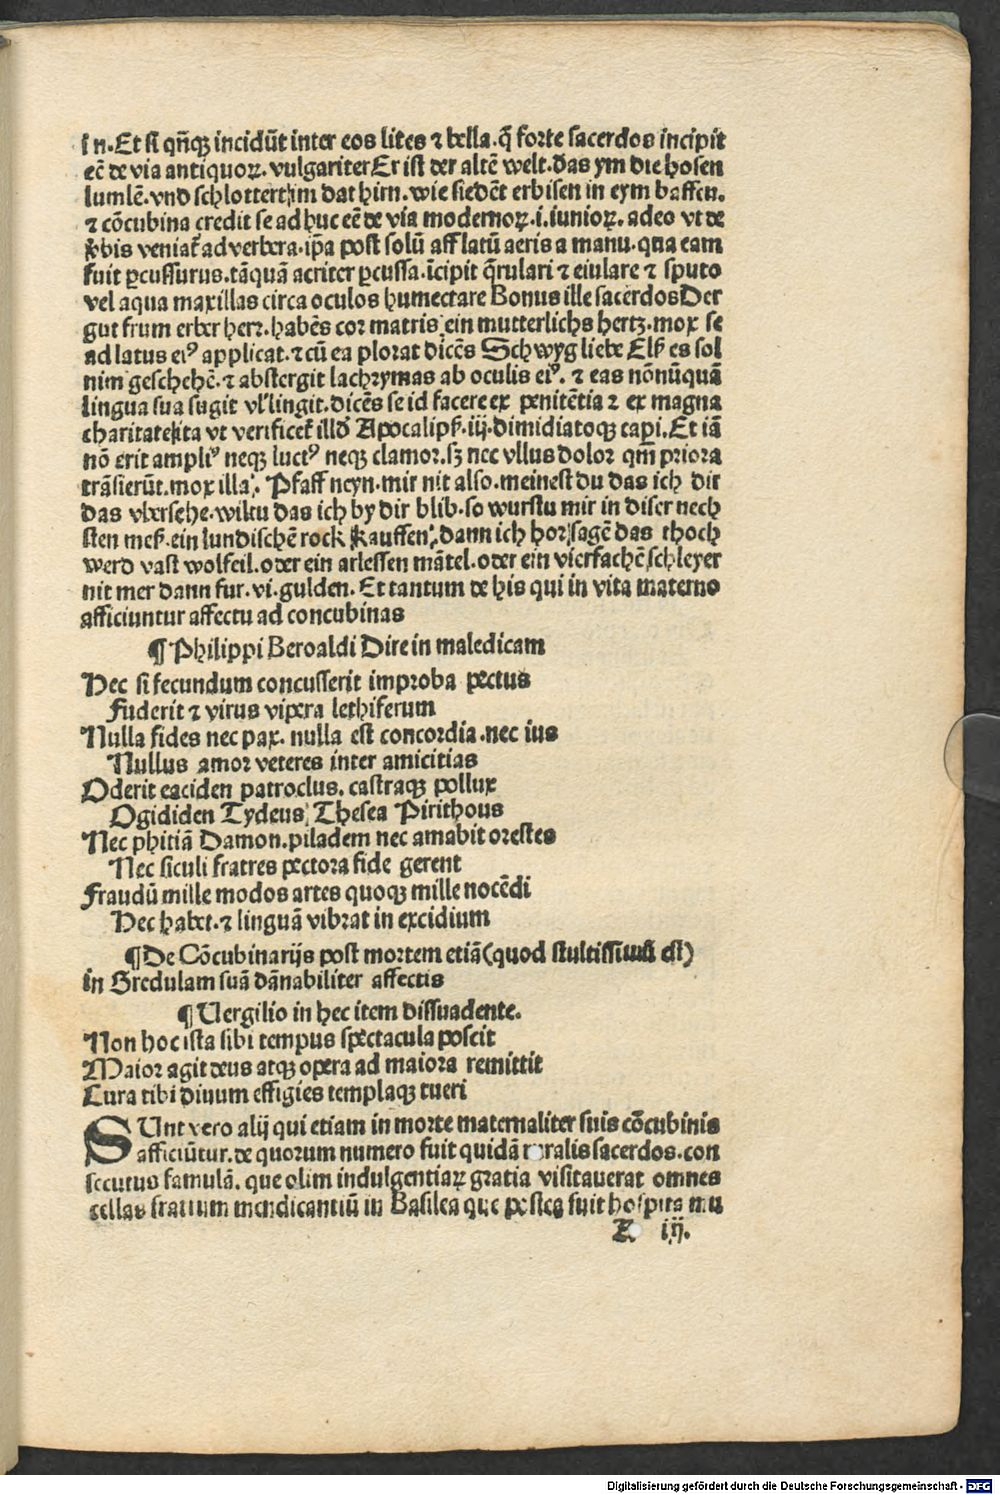 in. Et si qñqꝫ incidūt inter eos lites ⁊ bella. q̃ forte sacerdos incipit
eē de via antiquoꝝ. vulgariter Er ist der altē welt. das ym die hosen
lumlē. vnd schlottert im dat hirn. wie siedēt erbisen in eym baffen.
⁊ cōcubina credit se ad huc eē de via modernoꝝ. i. iunioꝝ. adeo vt de
ꝟbis veniat̃ ad verbera. ip̄a post solū afflatū aeris a manu. qua eam
fuit ꝑcussurus. tāquā acriter ꝑcussa. īcipit q̄rulari ⁊ eiulare ⁊ sputo
vel aqua maxillas circa oculos humectare Bonus ille sacerdos Der
gut frum erber herz. habēs cor matris ein mutterlichs hertz. mox se
ad latus eiꝰ applicat. ⁊ cū ea plorat dicēs Schwyg liebe Elß es sol
nim geschehē. ⁊ abstergit lachrymas ab oculis eiꝰ. ⁊ eas nōnūquā
lingua sua sugit vl̓ lingit. dicēs se id facere ex penitētia ⁊ ex magna
charitate ita vt verificet̃ illd̓ Apocalipß. iij. dimidiatoqꝫ capi. Et iā
nō erit ampliꝰ neqꝫ luctꝰ neqꝫ clamor. sꝫ nec vllus dolor qm̄ priora
trāsierūt. mox illa. Pfaff neyn. mir nit also. meinest du das ich dir
das vbersehe. wiltu das ich by dir blib. so wurstu mir in diser nech
sten meß. ein lundischē rock kauffen. dann ich hor sagē das thoch
werd vast wolfeil. oder ein arlessen mātel. oder ein vierfachē schleyer
nit mer dann fur. vi. gulden. Et tantum de his qui in vita materno
afficiuntur affectu ad concubinas
¶ Philippi Beroaldi Dire in maledicam
Hec si fecundum concusserit improba pectus
Fuderit ⁊ virus vipera lethiferum
Nulla fides nec pax. nulla est concordia. nec ius
Nullus amor veteres inter amicitias
Oderit eaciden patroclus. castraqꝫ pollux
Ogididen Tydeus Thesea Pirithous
Nec phitiā Damon. piladem nec amabit orestes
Nec siculi fratres pectora fide gerent
Fraudū mille modos artes quoqꝫ mille nocēdi
Hec habet. ⁊ linguā vibrat in excidium
¶ De Cōcubinarijs post mortem etiā (quod stultissimū est)
in Gredulam suā dānabiliter affectis
¶ Uergilio in hec item dissuadente.
Non hoc ista sibi tempus spectacula poscit
Maior agit deus atqꝫ opera ad maiora remittit
Cura tibi diuum effigies templaqꝫ tueri
SUnt vero alij qui etiam in morte maternaliter suis cōcubinis
afficiūtur. de quorum numero fuit quidā ruralis sacerdos. con
secutus famulā. que olim indulgentiaꝝ gratia visitauerat omnes
cellas fratrum mendicantiū in Basilea que postea fuit hospita mu
iij.
Digitalisierung gefördert durch die Deutsche Forschungsgemeinschaft - DFG